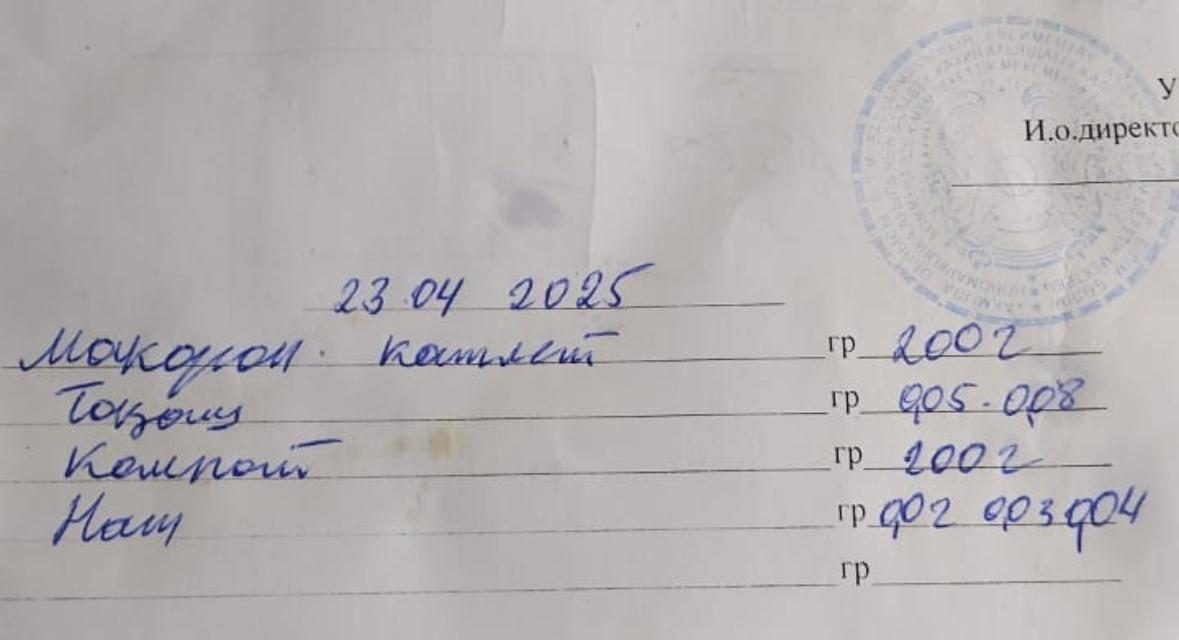 У
И.о.директо
23.04 2025
Макарон. катлет гр 200г
Тоқаш гр 0,05-0,08
Компот гр 200г
Нан гр 0,02 0,03 0,04
гр